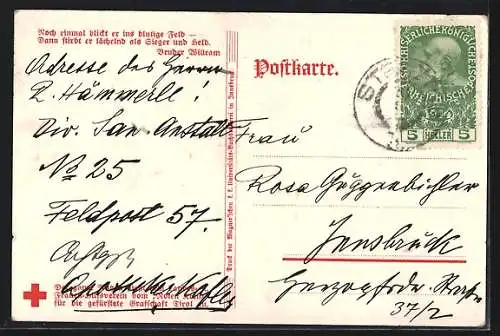 Noch einmal blickt er ins blutige Feld —
Dann stirbt er lächelnd als Sieger und Held.
Bruder Willram
Adresse des Herrn
R. Hämmerle!
Div. San. Anstalt
No 25
Feldpost 57.
Landes- und
Frauen-Hilfsverein vom Roten Kreuz
für die gefürstete Grafschaft Tirol
Druck der Wagner'schen k. k. Universitäts-Buchdruckerei in Innsbruck
Postkarte.
5 HELLER 5
Frau
Rosa Guggenbichler
Innsbruck
Herzog Fried. Straße
37/2